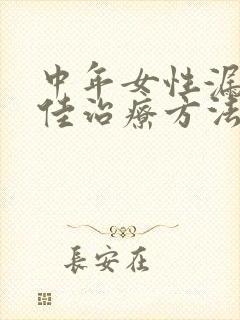 中年女性漏
佳治療方法
長安在